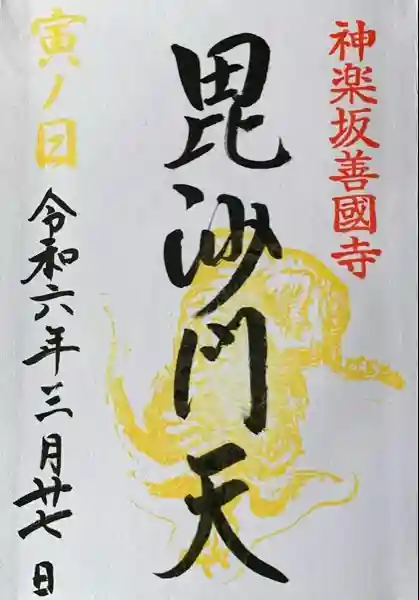 神楽坂善國寺
毘沙門天
寅ノ日
令和六年三月廿七日